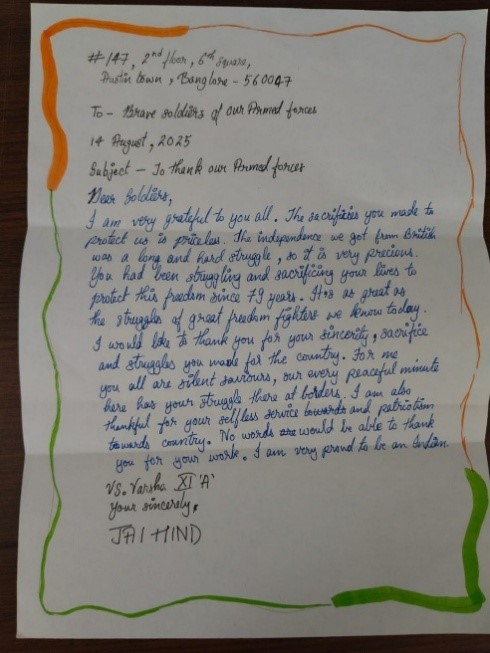 #147, 2nd floor, 6th square,
Austin town, Banglore - 560047
To - Brave soldiers of our Armed forces
14 August, 2025
Subject - To thank our Armed forces
Dear Soldiers,
I am very grateful to you all. The sacrificies you made to
protect us is priceless. The independence we got from British
was a long and hard struggle, so it is very precious.
You had been struggling and sacrificing your lives to
protect this freedom since 79 years. It is as great as
the struggles of great freedom fighters we know today.
I would like to thank you for your sincerity, sacrifice
and struggles you made for the country. For me
you all are silent saviours, our every peaceful minute
here has your struggle there at borders. I am also
thankful for your selfless service towards and patriotism
towards country. No words are would be able to thank
you for your work. I am very proud to be an Indian.
VS. Varsha XI 'A'
Your sincerely,
JAI HIND